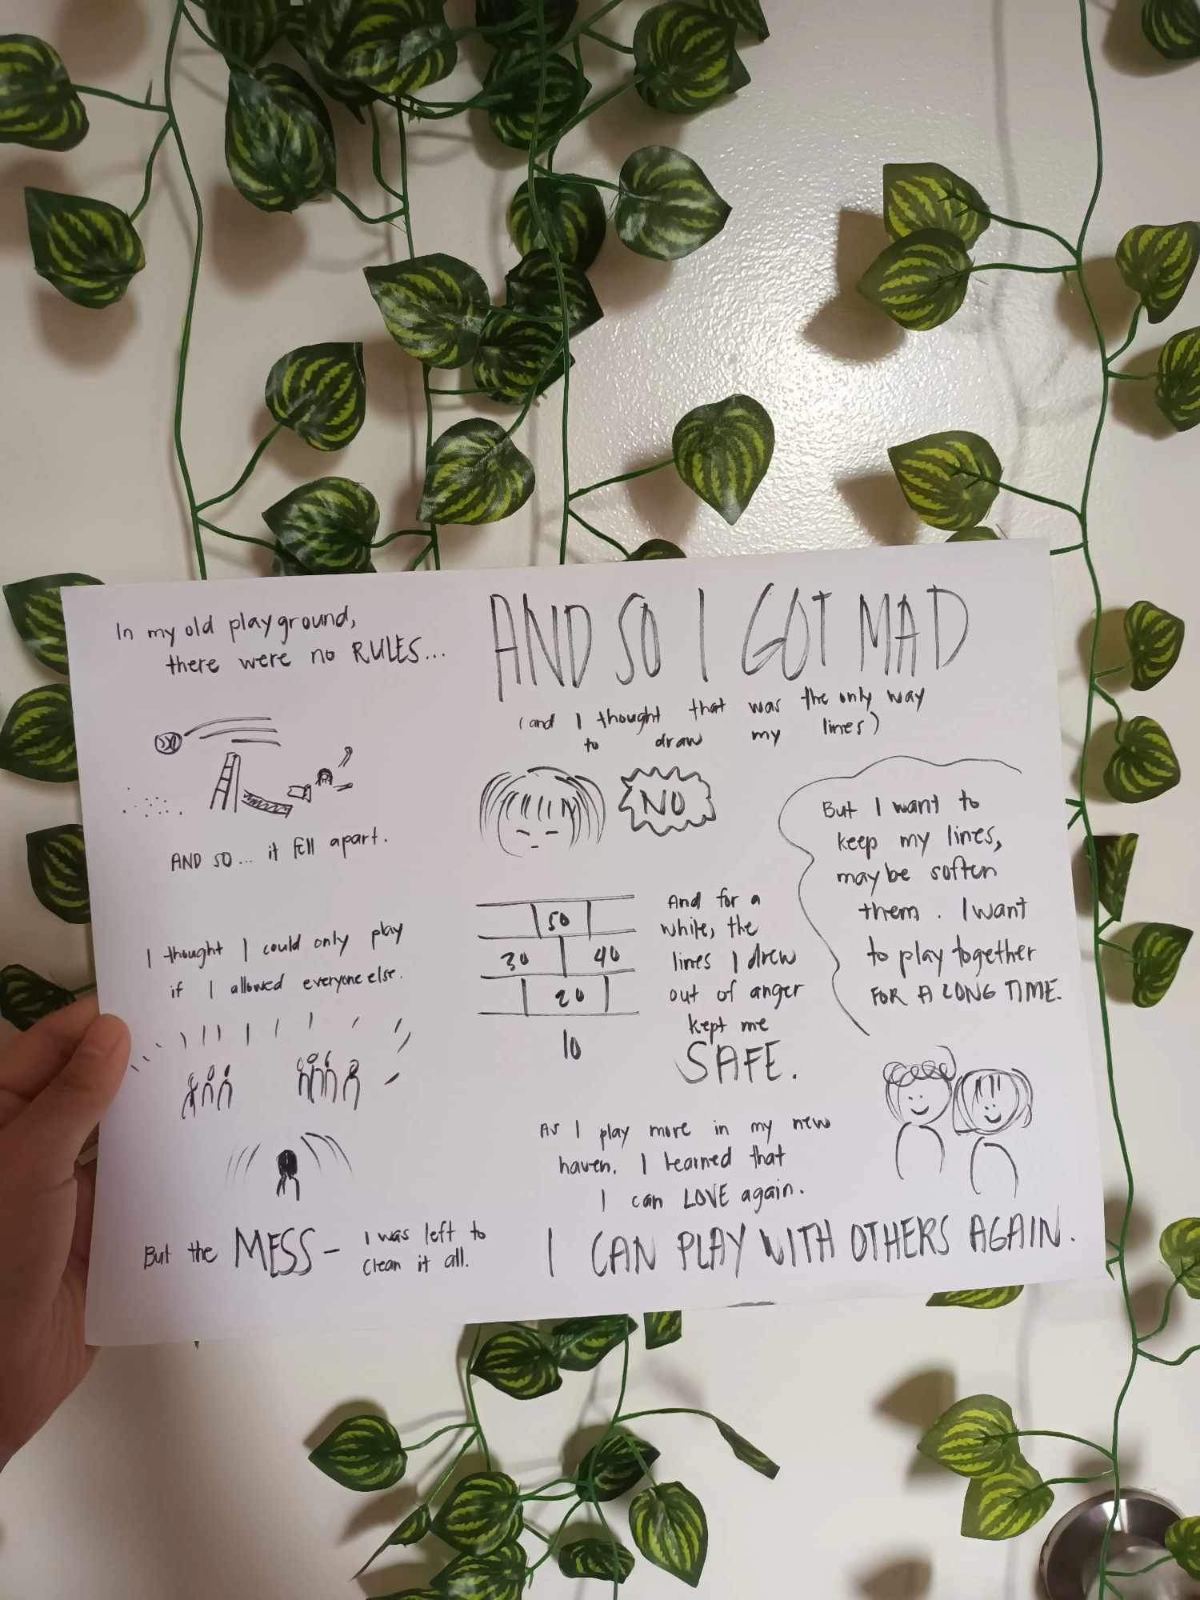 In my old playground,
there were no RULES...
AND SO... it fell apart.
I thought I could only play
if I allowed everyone else.
But the MESS –
I was left to
clean it all.
AND SO I GOT MAD
(and I thought that was the only way
to draw my lines)
NO
50
30 40
20
10
And for a
while, the
lines I drew
out of anger
kept me
SAFE.
But I want to
keep my lines,
maybe soften
them. I want
to play together
FOR A LONG TIME.
As I play more in my new
haven, I learned that
I can LOVE again.
I CAN PLAY WITH OTHERS AGAIN.